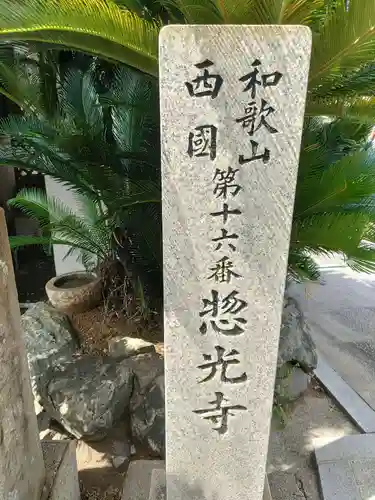 和歌山
西国
第十六番
惣光寺